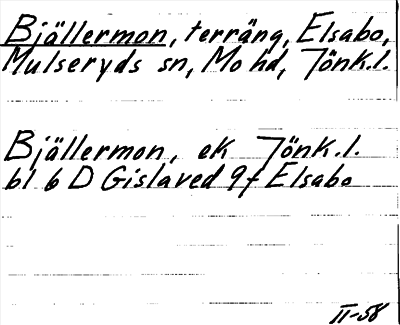 Bjällermon, terräng, Elsabo,
Mulseryds sn, Mo hd, Jönk.l.
Bjällermon, ek Jönk.l.
bl 6 D Gislaved 9f Elsabo
II-58